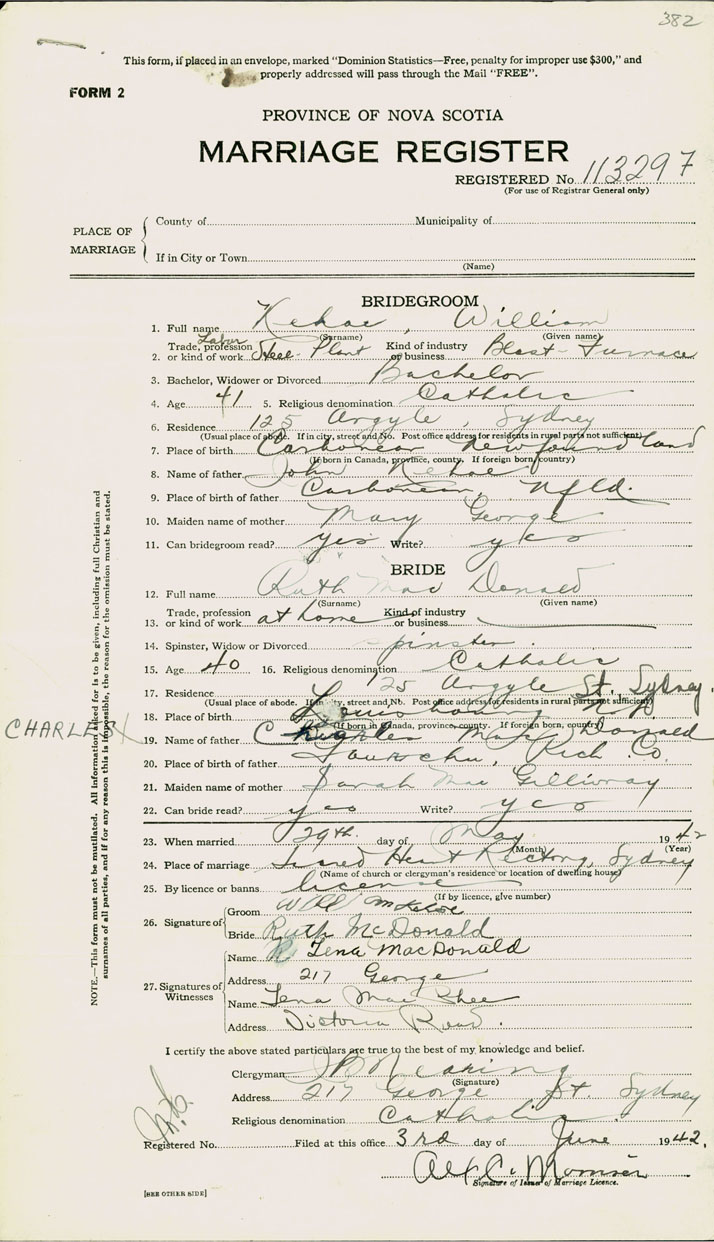 382
This form, if placed in an envelope, marked "Dominion Statistics—Free, penalty for improper use $300," and
properly addressed will pass through the Mail "FREE".
FORM 2
PROVINCE OF NOVA SCOTIA
MARRIAGE REGISTER
REGISTERED No. 113297
(For use of Registrar General only)
PLACE OF MARRIAGE
County of Municipality of
If in City or Town
(Name)
BRIDEGROOM
1. Full name Kehoe, William
(Surname) (Given name)
Labor
2. Trade, profession or kind of work Steel-Plant Kind of industry or business Blast-Furnace
3. Bachelor, Widower or Divorced Bachelor
4. Age 41 5. Religious denomination Catholic
6. Residence 125 Argyle, Sydney
(Usual place of abode. If in city, street and No. Post office address for residents in rural parts not sufficient)
7. Place of birth Carbonear Newfoundland
(If born in Canada, province, county. If foreign born, country)
8. Name of father John Kehoe
9. Place of birth of father Carbonear, Nfld.
10. Maiden name of mother Mary George
11. Can bridegroom read? yes Write? yes
BRIDE
12. Full name Ruth Mac Donald
(Surname) (Given name)
13. Trade, profession or kind of work at home Kind of industry or business
14. Spinster, Widow or Divorced spinster
15. Age 40 16. Religious denomination Catholic
17. Residence 125 Argyle St. Sydney.
(Usual place of abode. If in city, street and No. Post office address for residents in rural parts not sufficient)
18. Place of birth Louisbourg
(If born in Canada, province, county. If foreign born, country)
CHARLES X
19. Name of father Charles MacDonald
20. Place of birth of father Rich. Co.
21. Maiden name of mother Sarah Mac Gillivray
22. Can bride read? yes Write? yes
23. When married 29th. day of May 1942
(Month) (Year)
24. Place of marriage Sacred Heart Rectory, Sydney
(Name of church or clergyman's residence or location of dwelling house)
25. By licence or banns license
(If by licence, give number)
26. Signature of
Groom Will
Bride Ruth McDonald
27. Signatures of Witnesses
Name Lena MacDonald
Address 217 George
Name Lena Mac Phee
Address Victoria Road.
I certify the above stated particulars are true to the best of my knowledge and belief.
Clergyman
(Signature)
Address 217 George St. Sydney
Religious denomination Catholic
Registered No. Filed at this office 3rd day of June 1942.
Alex C.
Signature of Issuer of Marriage Licence.
[SEE OTHER SIDE]
NOTE.—This form must not be mutilated. All information asked for is to be given, including full Christian and
surnames of all parties, and if for any reason this is impossible, the reason for the omission must be stated.